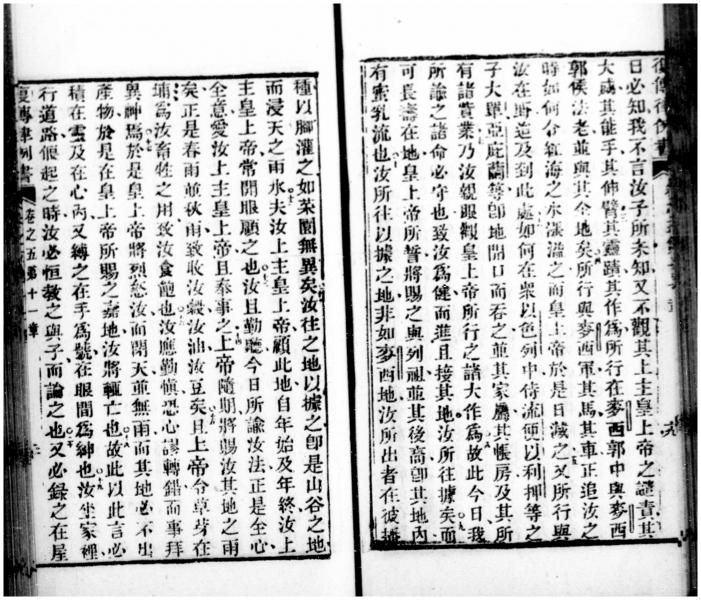 復傳律例書
日必知我不言汝子所未知又不觀其上主皇上帝之譴責其
大威其能手其伸臂其靈蹟其作為所行在麥西郭中與麥西
郭侯法老並與其全地矣所行與麥西軍其馬其車正追汝之
時如何令紅海之水漲溢之而皇上帝於是日滅之又所行與
汝在野迨及到此處如何在衆以色列中侍流便以利押等之
子大單亞庇蘭等卽地開口而吞之並其家屬其帳房及其所
有諸貲業乃汝親眼觀皇上帝所行之諸大作為故此今日我
所諭之諸命必守也致汝為健而進且接其地汝所往據矣而
可長壽在地皇上帝所誓將賜之與列祖並其後裔卽其地內
有蜜乳流也汝所往以據之地非如麥西地汝所出者在彼播
種以腳灌之如菜園無異矣汝往之地以據之卽是山谷之地
而浸天之雨水夫汝上主皇上帝顧此地自年始及年終汝上
主皇上帝常開眼顧之也汝且勤聽今日所諭汝法正是全心
全意愛汝上主皇上帝且奉事之上帝隨期將賜汝其地之雨
矣正是春雨並秋雨致收汝穀汝油汝豆矣且上帝令草芽在
埔為汝畜牲之用致汝食飽也汝應勤慎恐心謬轉錯而事拜
異神焉於是皇上帝將烈怒汝而閉天並無雨而其地必不出
產物於是在皇上帝所賜之嘉地汝將輒亡也故此以此言必
積在靈及在心內又縛之在手為號在眼間為紳也汝坐家裡
行道路偃起之時汝必恒教之與子而論之也又必錄之在屋
復傳律例書 卷之五第十一章